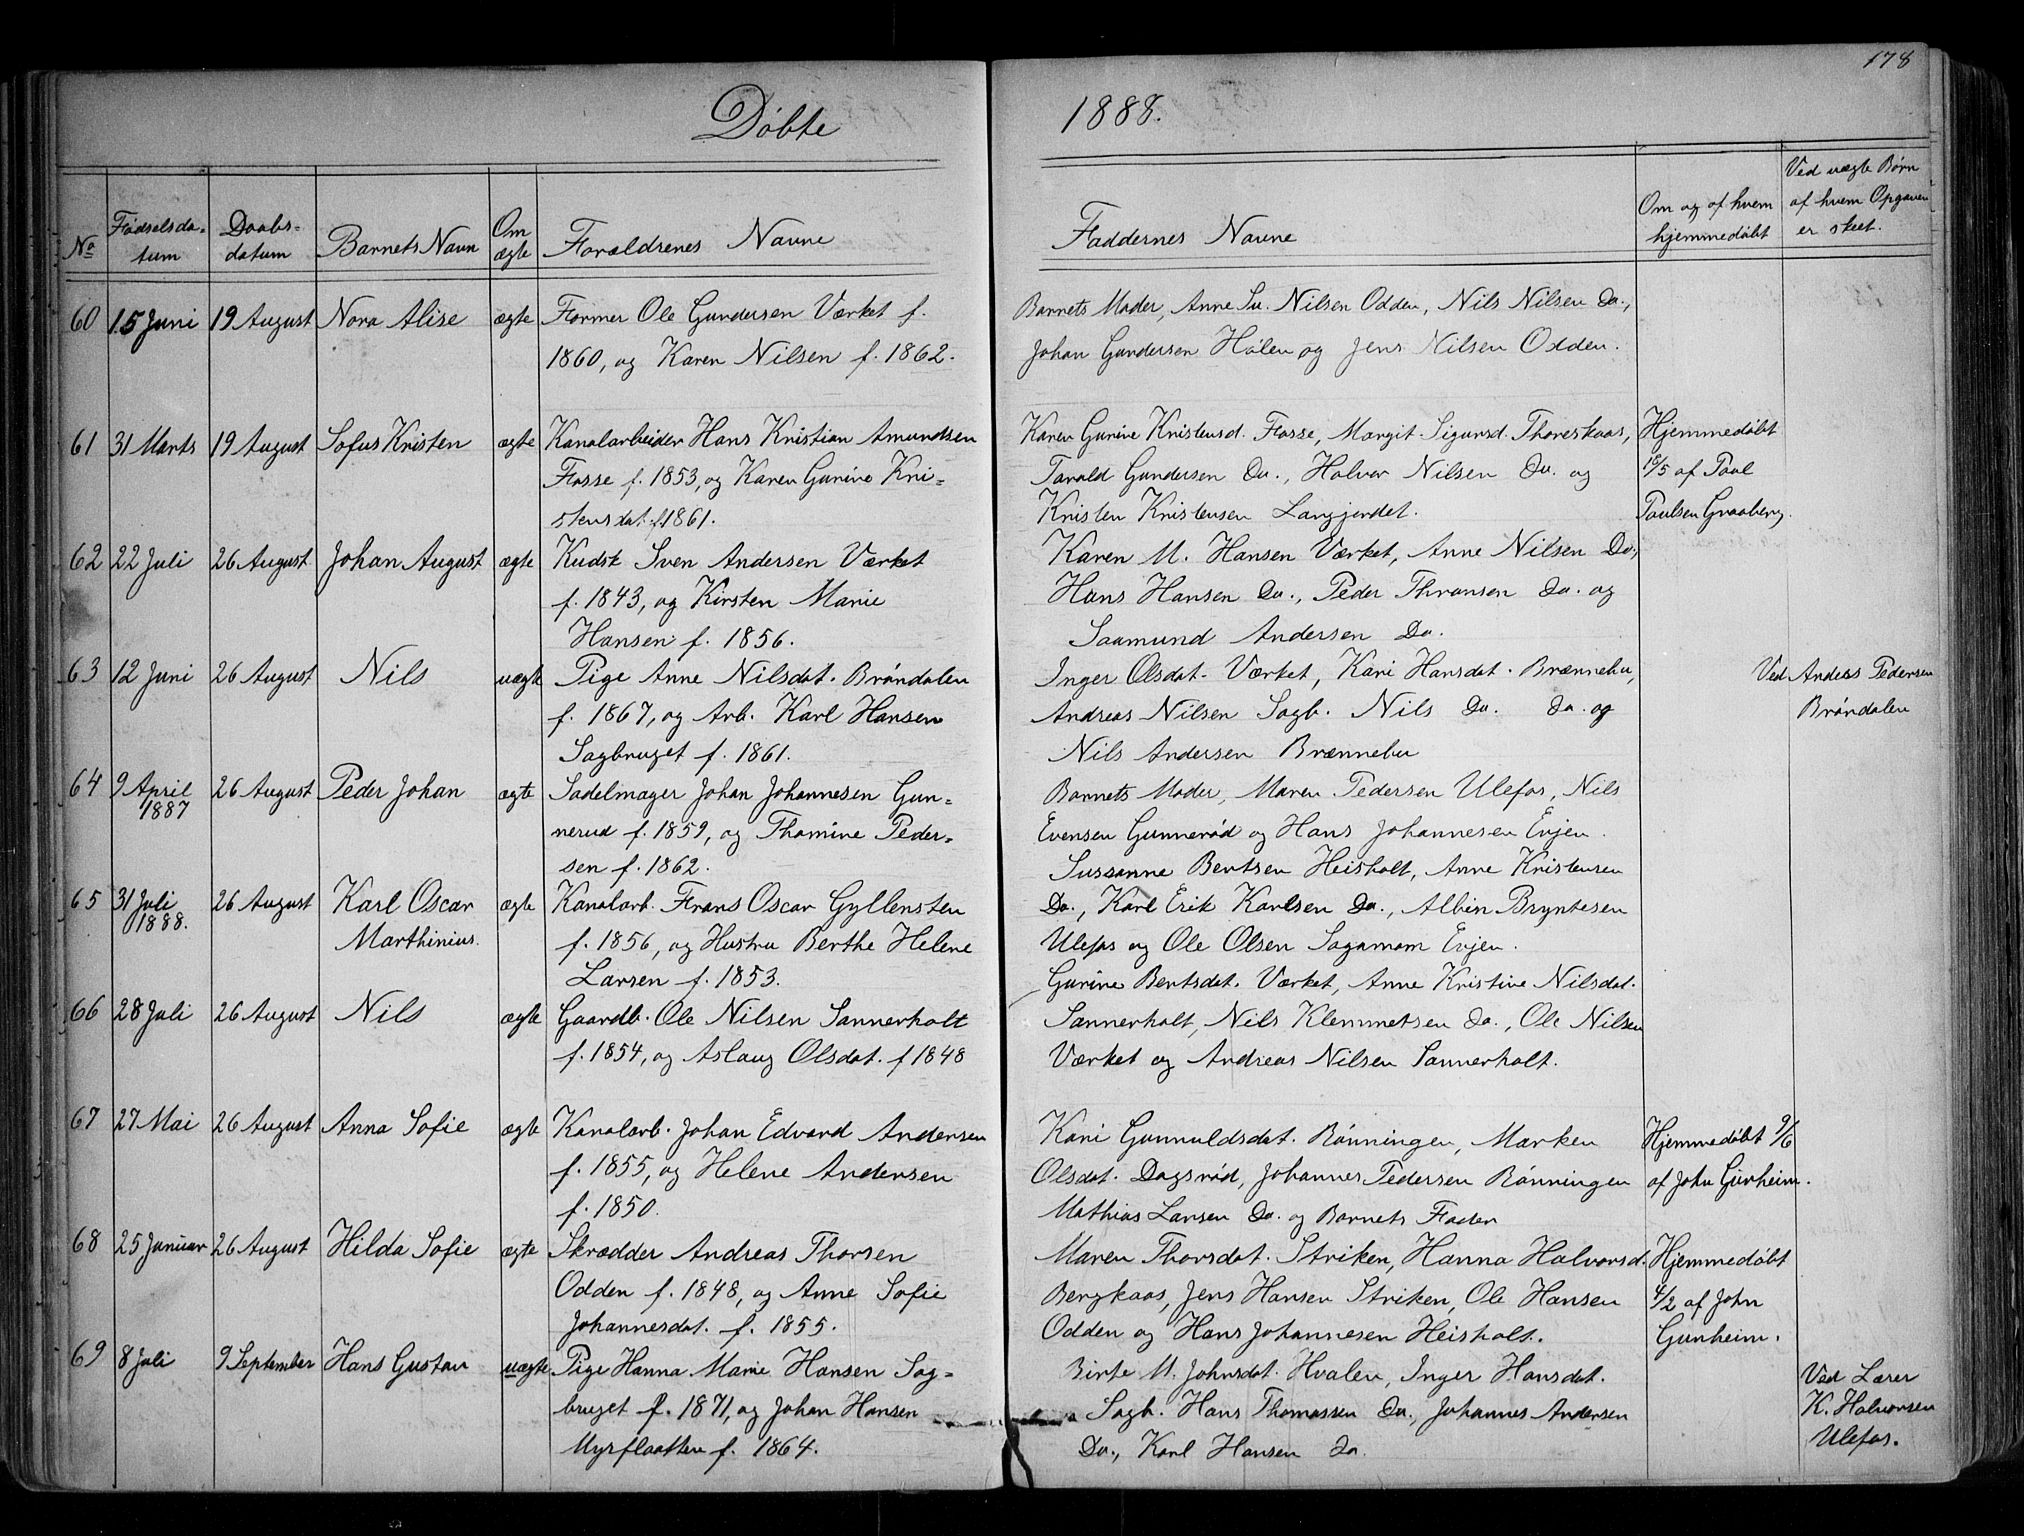 178
Døbte 1888.
No
Fødselsda-
tum
Daabs-
datum
Barnets Navn
Om
ægte
Forældrenes Navne
Faddernes Navne
Om og af hvem
hjemmedøbt
Ved uægte Børn
af hvem Opgaven
er skeet.
60 15 Juni 19 August Nora Alise ægte Former Ole Gundersen Værket f.
1860, og Karen Nilsen f. 1862.
Barnets Moder, Anne Su. Nilsen Odden, Nils Nilsen Do.,
Johan Gundersen Holen og Jens Nilsen Odden.
61 31 Marts 19 August Sofus Kristen ægte Kanalarbeider Hans Kristian Amundsen
Fosse f. 1853, og Karen Gurine Kri-
stensdat. f. 1861.
Karen Gurine Kristensd. Fosse, Margit Sigursd. Thoreskaas,
Tarald Gundersen Do., Halvor Nilsen Do. og
Kristen Kristensen Langjerdet.
Hjemmedøbt
18/5 af Paul
Paulsen Graaberg.
62 22 Juli 26 August Johan August ægte Kudsk Sven Andersen Værket
f. 1843, og Kirsten Marie
Hansen f. 1856.
Karen M. Hansen Værket, Anne Nilsen Do.,
Hans Hansen Do., Peder Thronsen Do. og
Saamund Andersen Do.
63 12 Juni 26 August Nils uægte Pige Anne Nilsdat. Brøndalen
f. 1867, og Arb. Karl Hansen
Sagbruget f. 1861.
Inger Olsdat. Værket, Kari Hansdat. Brænnebu,
Andreas Nilsen Sagb. Nils Do. Do. og
Nils Andersen Brænnebu
Ved Anders Pedersen
Brøndalen
64 9 April
1887
26 August Peder Johan ægte Sadelmager Johan Johannesen Gun-
nerud f. 1859, og Thomine Peder-
sen f. 1862.
Barnets Moder, Maren Pedersen Ulefos, Nils
Evensen Gunnerød og Hans Johannesen Evjen.
65 31 Juli
1888.
26 August Karl Oscar
Marthinius.
ægte Kanalarb. Frans Oscar Gyllensten
f. 1856, og Hustru Berthe Helene
Larsen f. 1853.
Sussanne Bentsen Heisholt, Anne Kristensen
Do., Karl Erik Karlsen Do., Albin Bryntesen
Ulefos og Ole Olsen Sagamoen Evjen.
66 28 Juli 26 August Nils ægte Gaardb. Ole Nilsen Sannerholt
f. 1854, og Aslaug Olsdat. f 1848
Gurine Bentsdat. Værket, Anne Kristine Nilsdat.
Sannerholt, Nils Klemmetsen Do., Ole Nilsen
Værket og Andreas Nilsen Sannerholt.
67 27 Mai 26 August Anna Sofie ægte Kanalarb. Johan Edvard Andersen
f. 1855, og Helene Andersen
f. 1850.
Kari Gunnuldsdat. Rønningen, Marken
Olsdat. Dagsrød, Johannes Pedersen Rønningen
Mathias Larsen Do. og Barnets Fader
Hjemmedøbt 9/6
af John Gunheim.
68 25 Januar 26 August Hilda Sofie ægte Skrædder Andreas Thorsen
Odden f. 1848, og Anne Sofie
Johannesdat. f. 1855.
Maren Thorsdat. Striken, Hanna Halvorsd.
Bergkaas, Jens Hansen Striken, Ole Hansen
Odden og Hans Johannesen Heisholt.
Hjemmedøbt
4/2 af John
Gunheim.
69 8 Juli 9 September Hans Gustav uægte Pige Hanna Marie Hansen Sag-
bruget f. 1871, og Johan Hansen
Myrflaatten f. 1864.
Birte M. Johnsdat. Hvalen, Inger Hansdat.
Sagb. Hans Thomassen Do., Johannes Andersen
Do., Karl Hansen Do
Ved Lærer
K. Halvorsen
Ulefos.